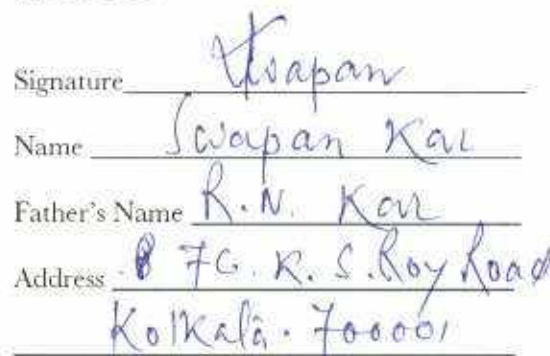 Signature Swapan
Name Swapan Kar
Father's Name R.N. Kar
Address 7C. K. S. Roy Road
Kolkata - 700001